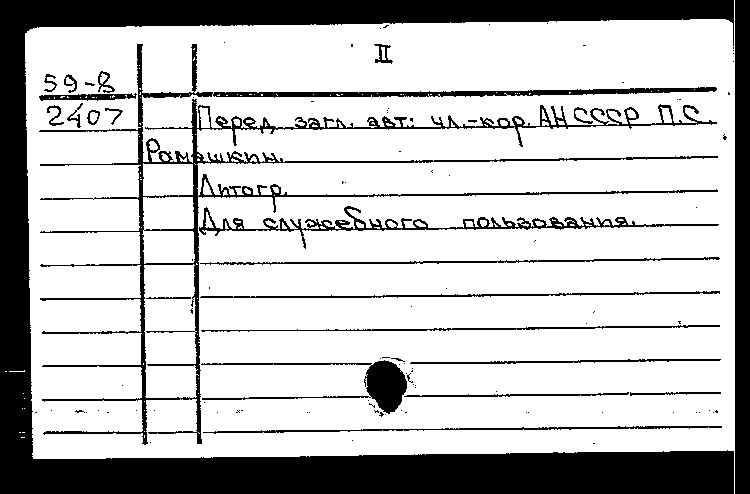 II
59-8
2407
Перед загл. авт: чл.-кор. АН СССР П.С.
Ромашкин.
Литогр.
Для служебного пользования.